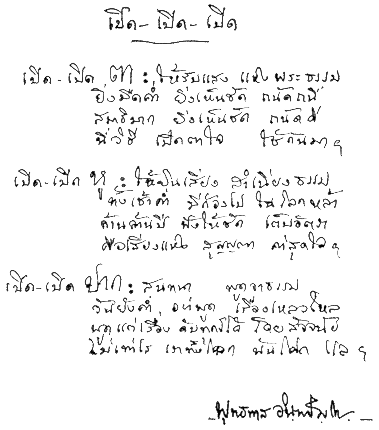 เปิด - เปิด - เปิด
เปิด - เปิด ตา : ให้รับแสง แห่งพระธรรม
ยิ่งมืดค่ำ ยิ่งเห็นชัด ถนัดถนี่
สมาธิมาก ยิ่งเห็นชัด ถนัดดี
นี่วิธี เปิดตาใจ ใช้กันมา ฯ
เปิด - เปิด หู : ให้ยินเสียง สำเนียงธรรม
ทั้งเช้าค่ำ มีก้องไป ในโลกหล้า
ล้านล้านปี ฟังให้ชัด เต็มอัตรา
คือเสียงแห่ง สุญญตา ค่าสุดใจ ฯ
เปิด - เปิด ปาก : สนทนา พูดจาธรรม
วันยังค่ำ อย่าพูด เรื่องเหลวไหล
พูดแต่เรื่อง ดับทุกข์ได้ โดยสัจจนัย
ไม่เท่าไร เราทั้งโลก พ้นโศก แล ฯ
พุทธทาส อินฺทปญฺโญ